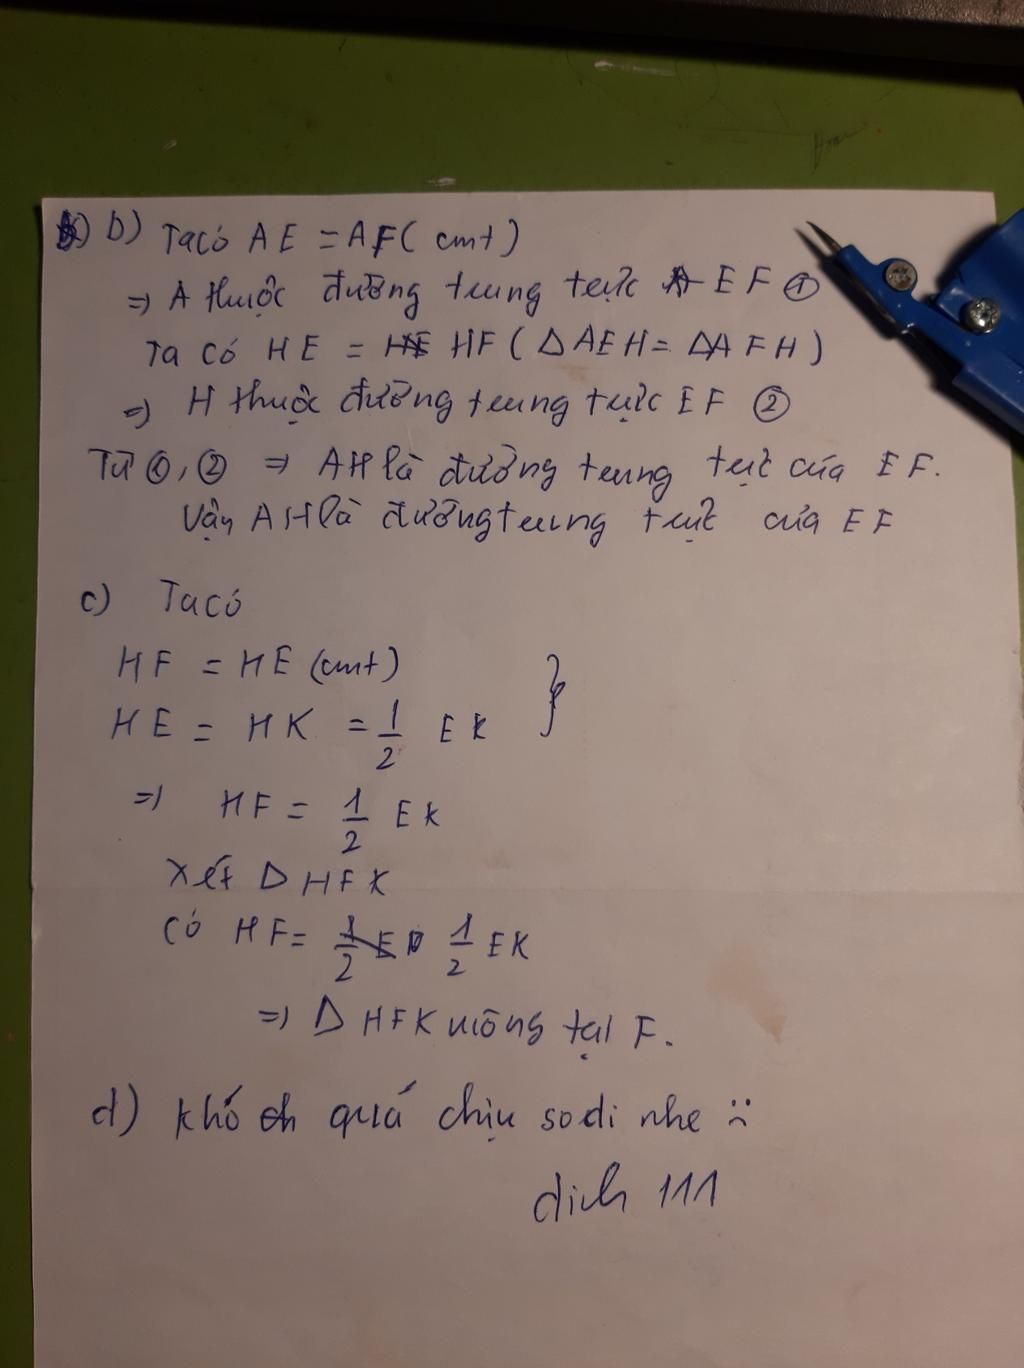 b) Ta có AE = AF ( cmt )
=> A thuộc đường trung trực EF ①
Ta có HE = HF ( Δ AEH = Δ AFH )
=> H thuộc đường trung trực EF ②
Từ ①, ② => AH là đường trung trực của EF.
Vậy AH là đường trung trực của EF
c) Ta có
HF = HE (cmt) }
HE = HK = 1/2 EK
=> HF = 1/2 EK
Xét Δ HFK
có HF = 1/2 EK
=> Δ HFK vuông tại F.
d) khó quá chịu sodi nhe :(
dich 111